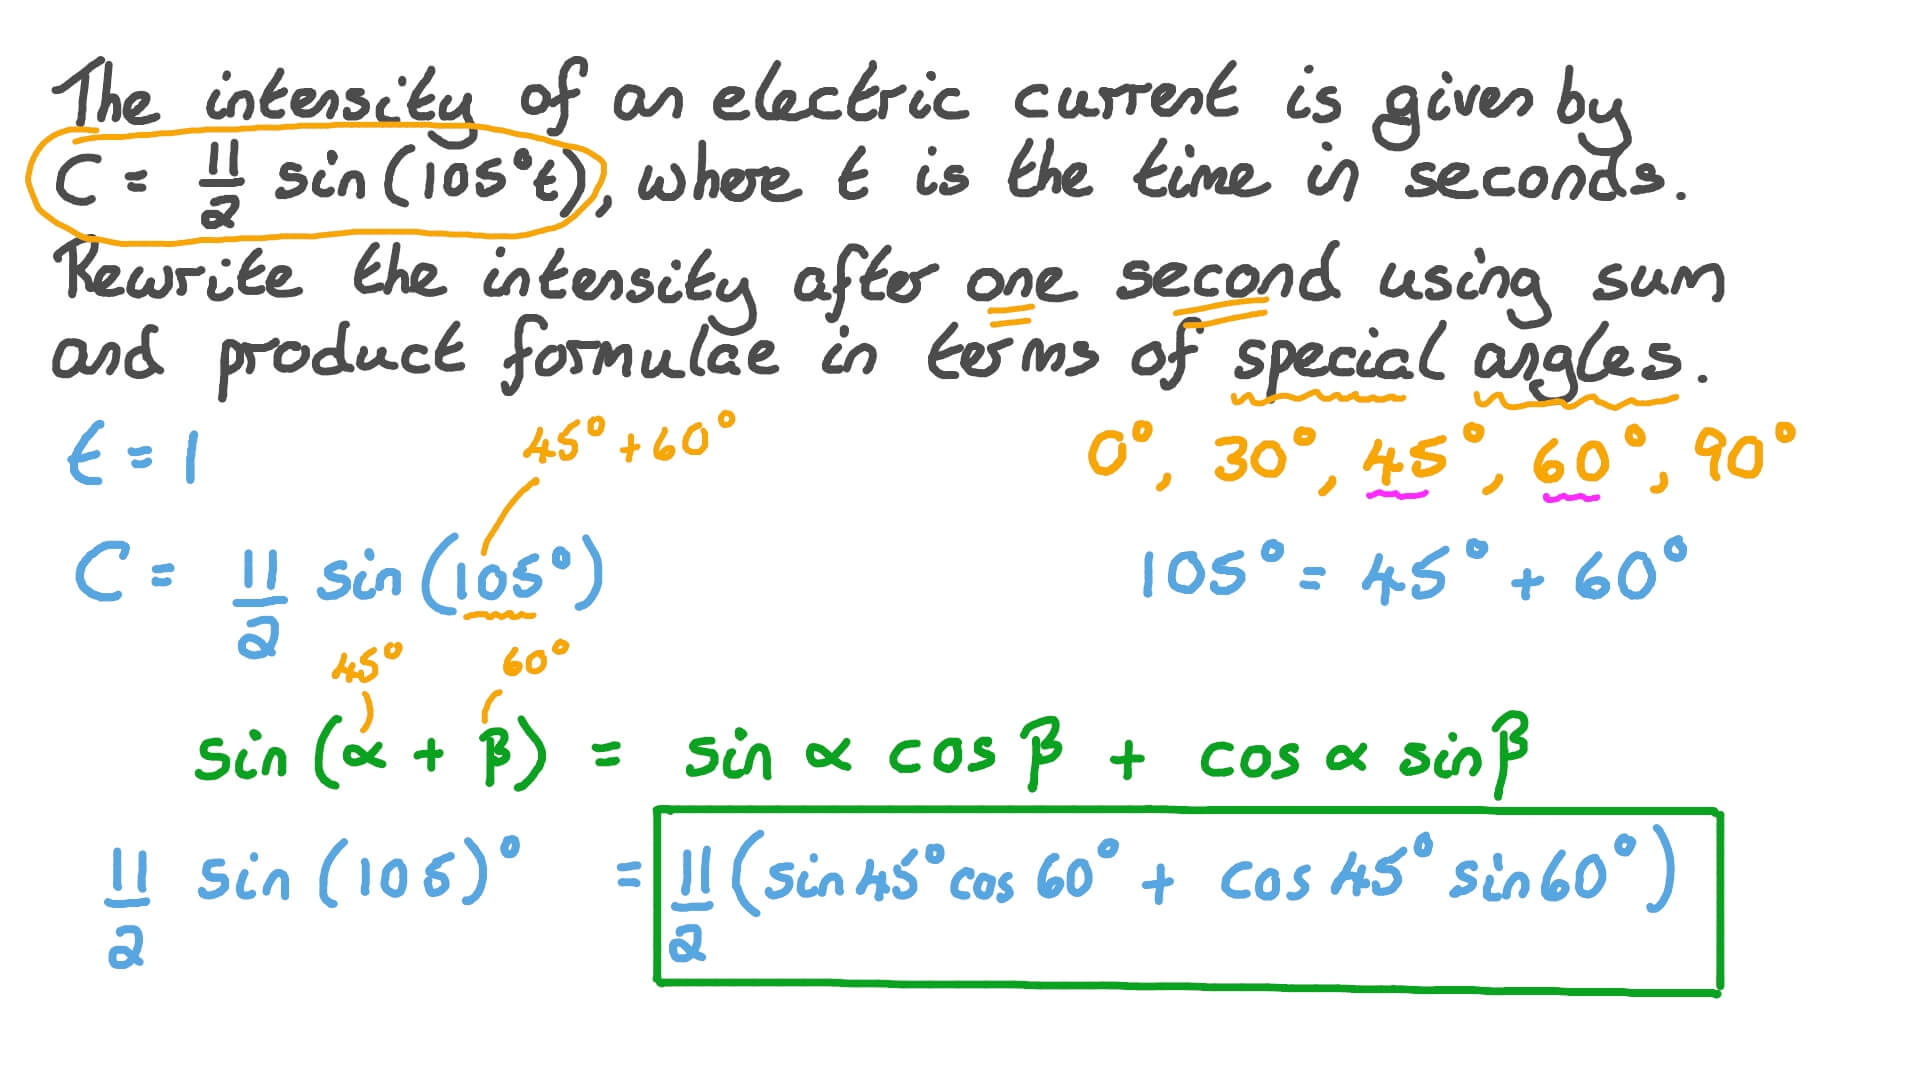 The intensity of an electric current is given by
C = 11/2 sin(105°t), where t is the time in seconds.
Rewrite the intensity after one second using sum
and product formulae in terms of special angles.
t = 1
45° + 60°
0°, 30°, 45°, 60°, 90°
C = 11/2 sin(105°)
105° = 45° + 60°
45° 60°
sin(α + β) = sin α cos β + cos α sin β
11/2 sin(105)° = 11/2 (sin 45° cos 60° + cos 45° sin 60°)